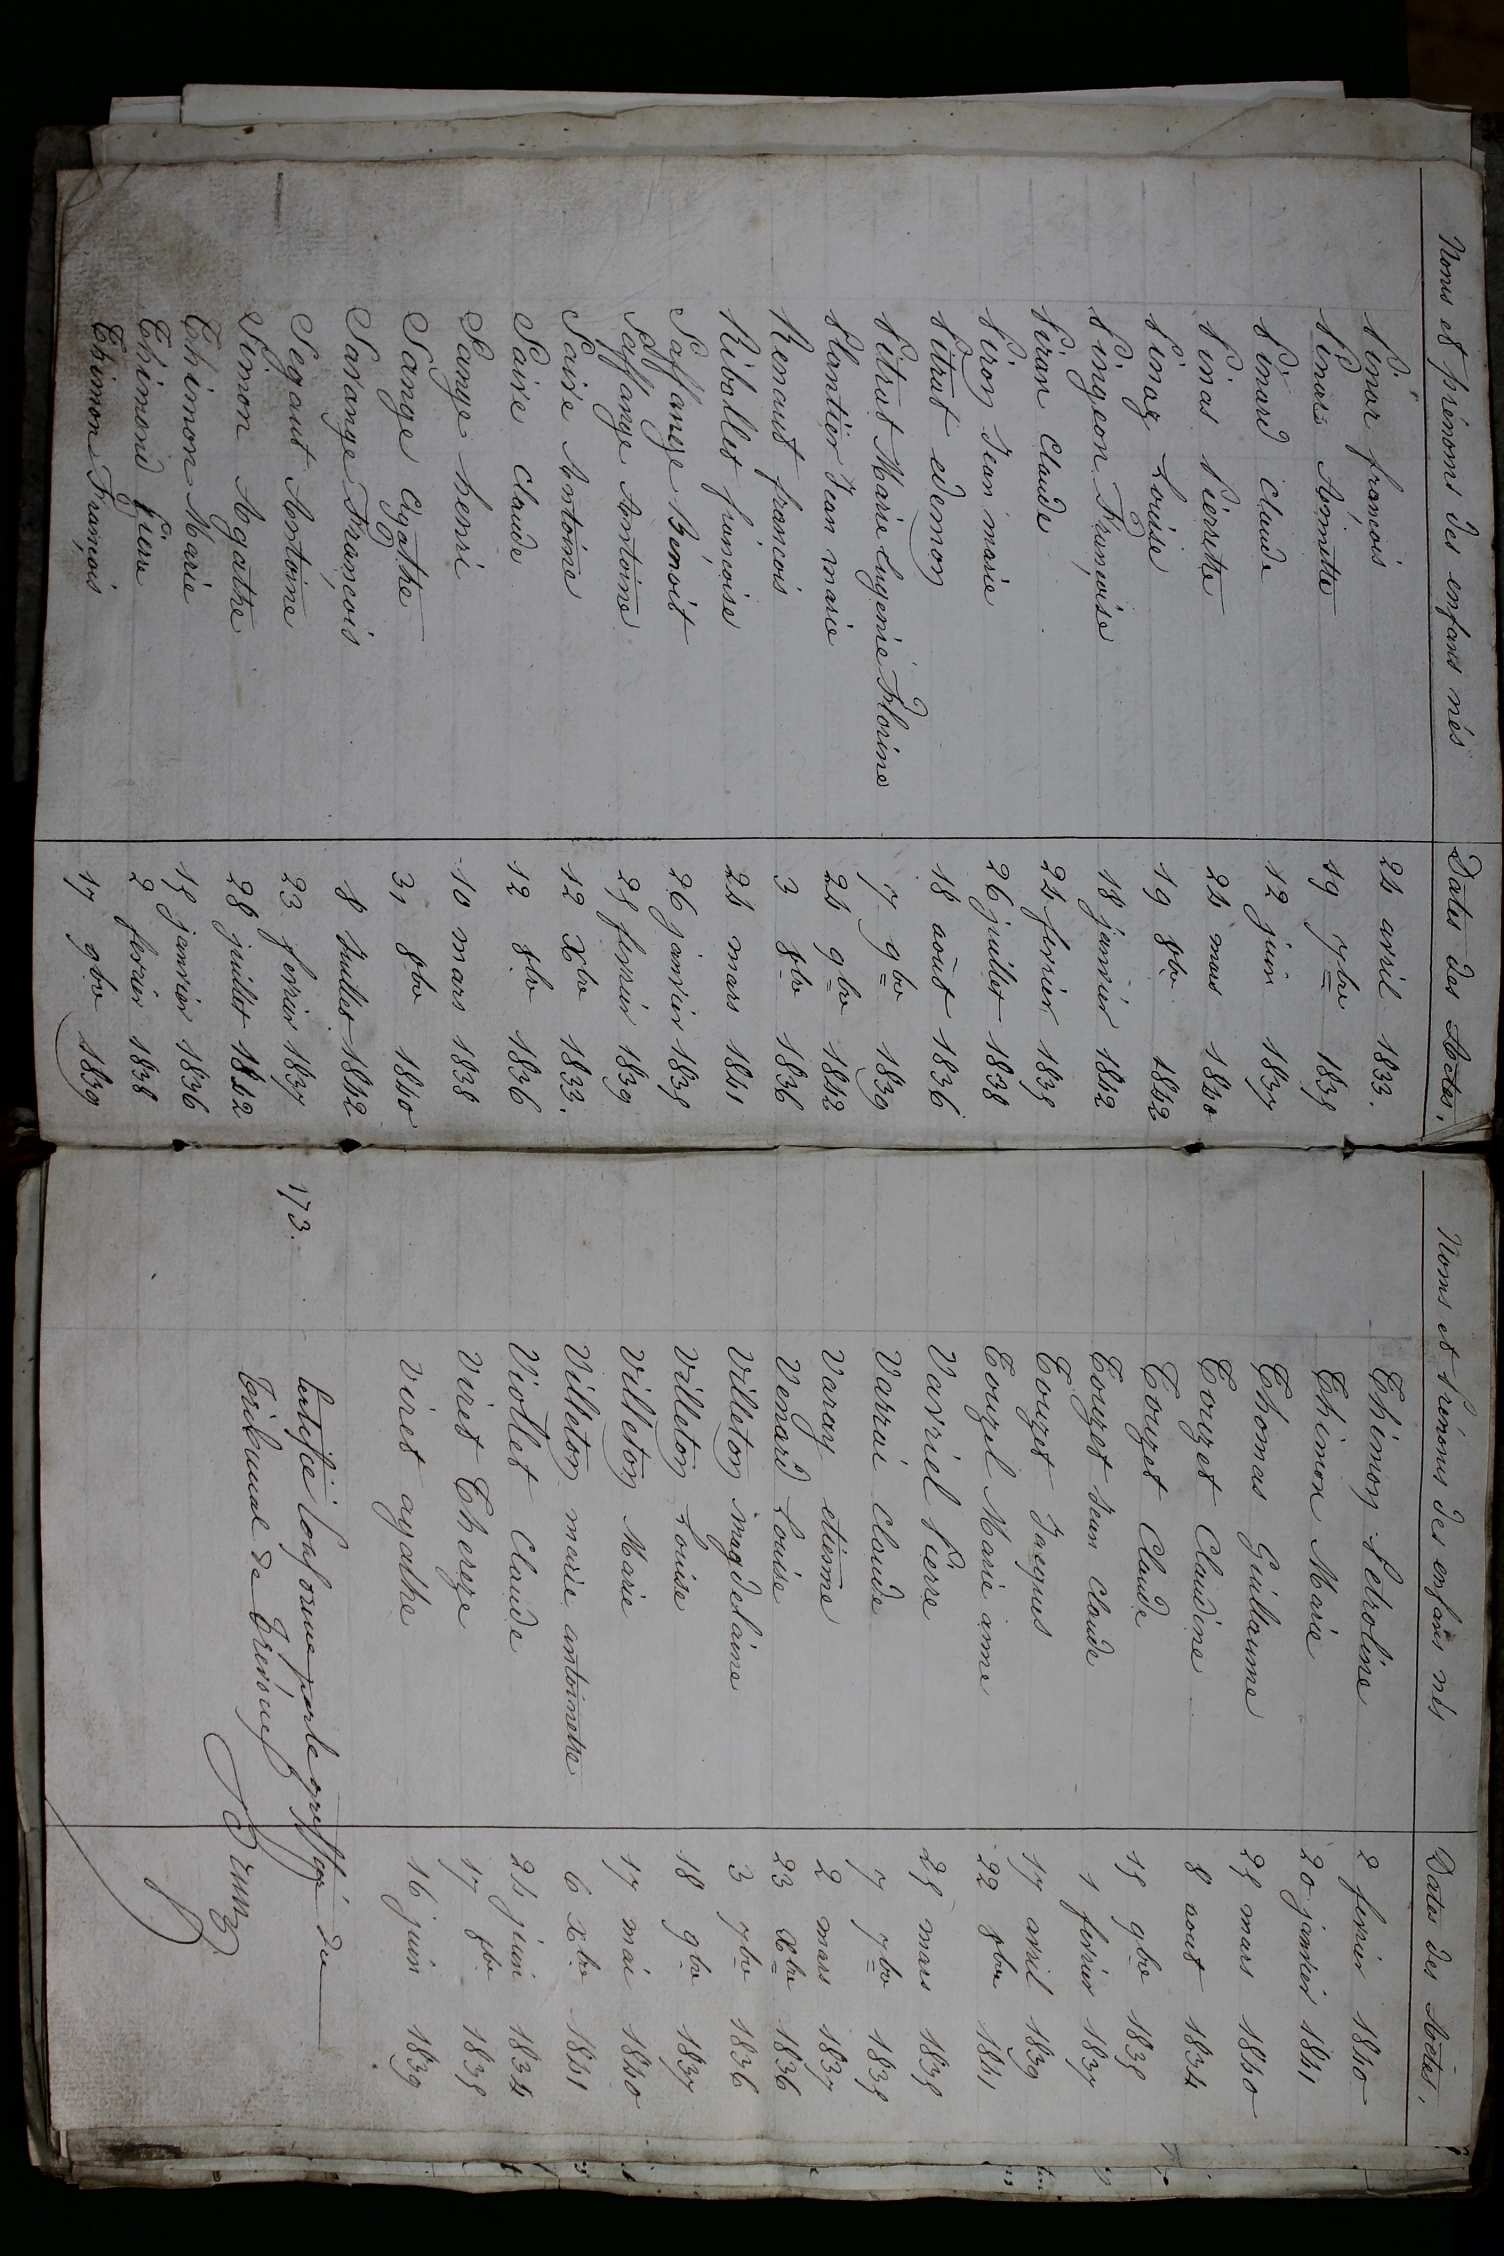 Noms et prénoms des enfans nés Dates des Actes.
Pinar françois 24 avril 1833.
Pinars Annette 19 7bre 1835
Pinard Claude 12 juin 1837
Pinas Pierrette 24 mars 1840
Pinaz Louise 19 8bre 1842
Pingeon Françoise 18 janvier 1842
Piran Claude 24 fevrier 1835
Piron Jean marie 26 juillet 1838
Pitrat edemon 18 août 1836
Pitrat Marie Eugenie Florine 7 9bre 1839
Plantier Jean marie 24 9bre 1842
Renaut françois 3 8bre 1836
Ribollet françoise 24 mars 1841
Saffange Benoit 26 janvier 1835
Saffange Antoine 25 fevrier 1839
Saire Antoine 12 Xbre 1833.
Saire Claude 12 8bre 1836
Sange henri 10 mars 1838
Sange Agathe 31 8bre 1840
Sarange François 8 Juillet 1842
Segaut Antoine 23 fevrier 1837
Simon Agathe 28 juillet 1842
Thimon Marie 15 janvier 1836
Thimond Pierre 2 fevrier 1838
Thimon François 17 9bre 1839
Noms et Prénoms des enfans nés Dates des Actes.
Thimon Petroline 2 fevrier 1840
Thimon Marie 20 janvier 1841
Thomas Guillaume 25 mars 1840
Touzet Claudine 8 aout 1834
Touzet Claude 15 9bre 1835
Touzet Jean Claude 1 fevrier 1837
Touzet Jacques 17 avril 1839
Touzel Marie anne 22 8bre 1841
Vavriel Pierre 25 mars 1835
Varrai Claude 7 7bre 1835
Varay etienne 2 mars 1837
Venard Louise 23 Xbre 1836
Villeton magdelaine 3 7bre 1836
Villeton Louise 18 9bre 1837
Villeton Marie 17 mai 1840
Villeton marie antoinette 6 Xbre 1841
Viollet Claude 24 juin 1834
Viret Thereze 17 8bre 1835
Viret agathe 16 juin 1839
173.
Certifié Conforme par le greffier du
Tribunal de Trévoux